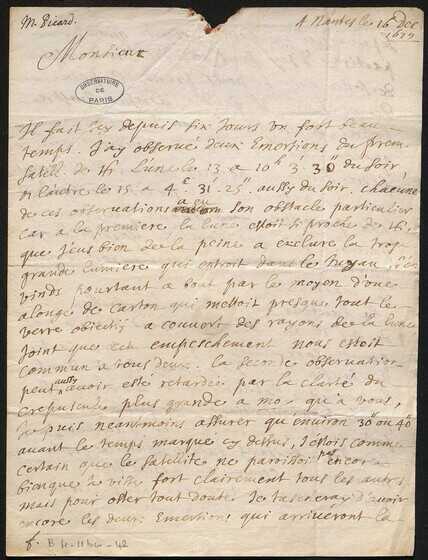 M. Picard.
A Nantes le 16 Dec
1679
Monsieur
OBSERVATOIRE
DE
PARIS
Il fait icy depuis six jours un fort beau
temps. J'ay observé deux Emersions du prem.
satell. de ♃. L'une le 13 a 10h 3' 30" du soir
et l'autre le 15 a 4. 31. 25" aussy du soir. chacune
de ces observations a eu son obstacle particulier
car a la premiere la lune estoit si proche de ♃,
que j'eus bien de la peine a exclure la trop
grande lumiere qui entroit dans le tuyau, j'en
vins pourtant a bout par le moyen d'une
alonge de carton qui mettoit presque tout le
verre objectif a couvert des rayons de la lune
joint que cet empeschement nous estoit
commun a tous deux. la seconde observation
peut aussy avoir esté retardée par la clarté du
crepuscule plus grande a moy qu'a vous,
Je puis neantmoins assurer qu'environ 30" ou 40"
avant le temps marqué cy dessus, j'estois comme
certain que le satellite ne paroissoit pas encore
bienque je visse fort clairement tous les autres
mais pour oster tout doute Je tascheray d'avoir
encore les deux Emersions qui arriveront la
B 4 - 11 bis - 42